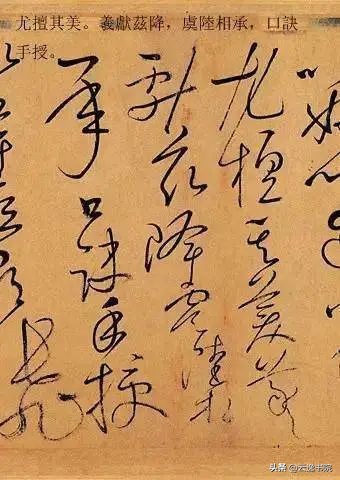 尤擅其美。羲獻茲降，虞陸相承，口訣
手授。
尤擅其美羲
獻茲降虞陸相
承口訣手授
头条 @云逸书院